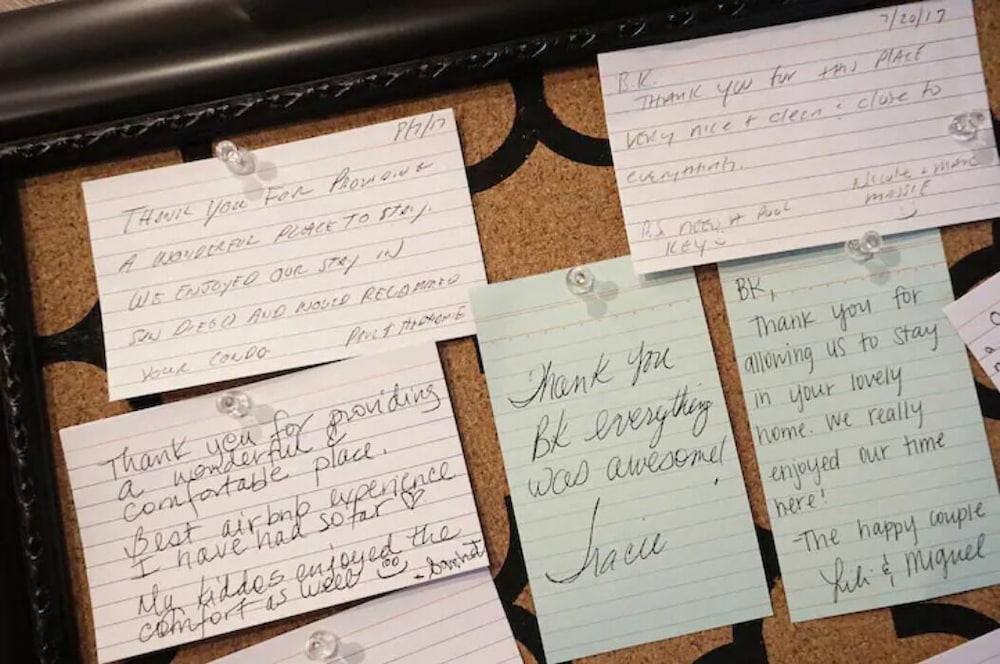 8/7/17
THANK YOU FOR PROVIDING
A WONDERFUL PLACE TO STAY.
WE ENJOYED OUR STAY IN
SAN DIEGO AND WOULD RECOMMEND
YOUR CONDO
7/20/17
B.K.
THANK YOU for this PLACE
VERY nice + clean & close to
everything.
Nicole + MARC
MASSIE
P.S. NEED A POOL
KEY
Thank you for providing
a wonderful &
comfortable place.
Best airbnb experience
I have had so far ♡
My kiddos enjoyed the
comfort as well
Thank You
BK everything
was awesome!
Tracie
BK,
Thank you for
allowing us to stay
in your lovely
home. We really
enjoyed our time
here!
-The happy couple
Lili & Miguel